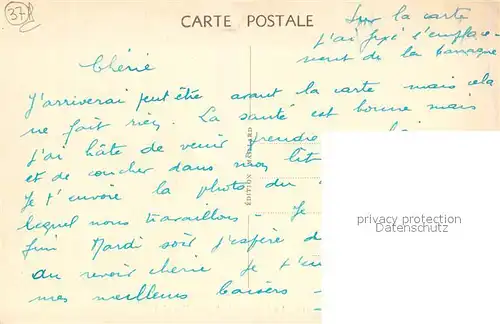 37
CARTE POSTALE
Sur la carte
j'ai fixé l'emplace-
ment de la baraque
Chérie
J'arriverai peut être avant la carte mais cela
ne fait rien. La santé est bonne mais
j'ai hâte de venir prendre
et de coucher dans mon lit
Je t'envoie la photo du
lequel nous travaillons - Je
fini Mardi soir j'espère
au revoir chérie Je t'en
mes meilleurs baisers -
EDITION GAILLARD
privacy protection
www.oldthing.de